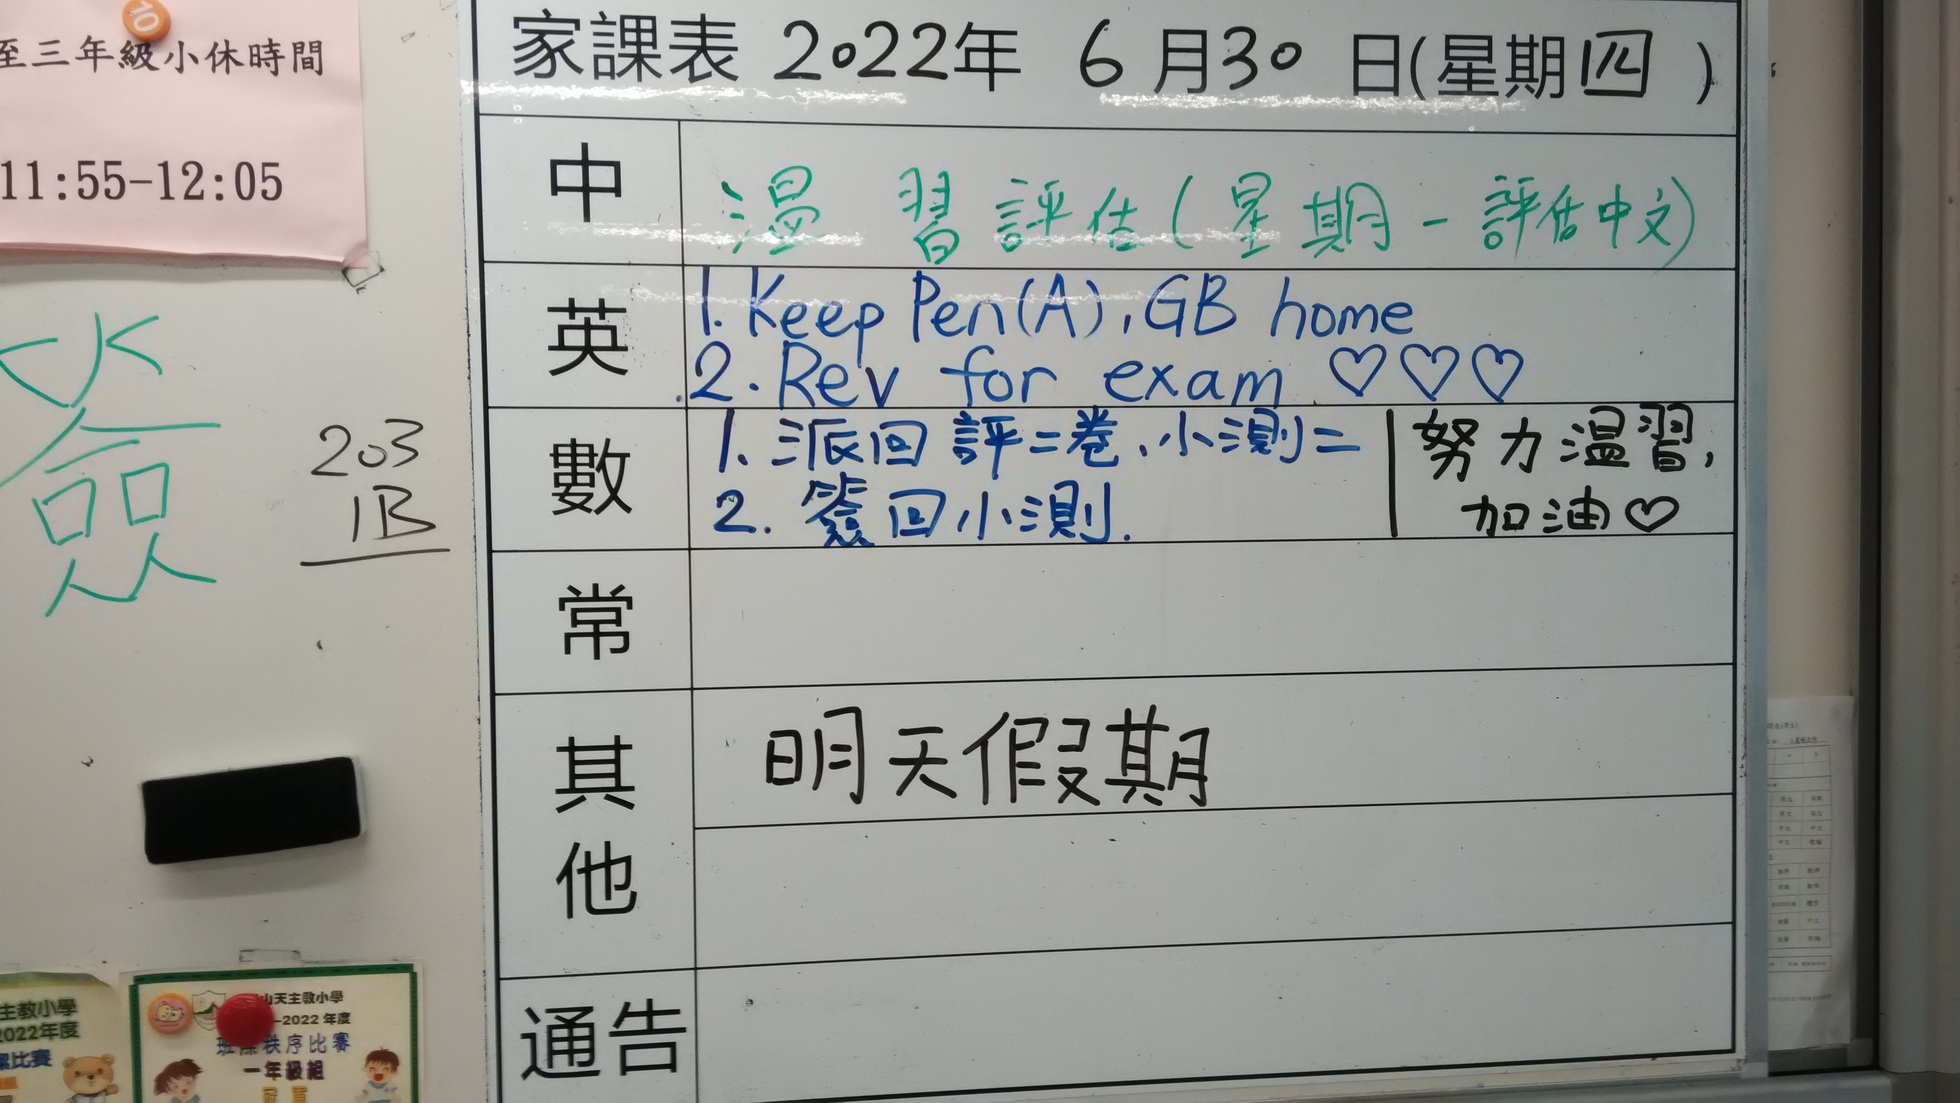 至三年級小休時間
11:55-12:05
家課表 2022年 6月30日(星期四)
中
溫習評估(星期一評估中文)
英
1. Keep Pen(A), GB home
2. Rev for exam ♡♡♡
數
1. 派回評二卷、小測二
2. 簽回小測.
努力溫習,
加油♡
常
其他
明天假期
通告
203
1B
主教小學
2022年度
比賽
山天主教小學
-2022 年度
秩序比賽
一年級組